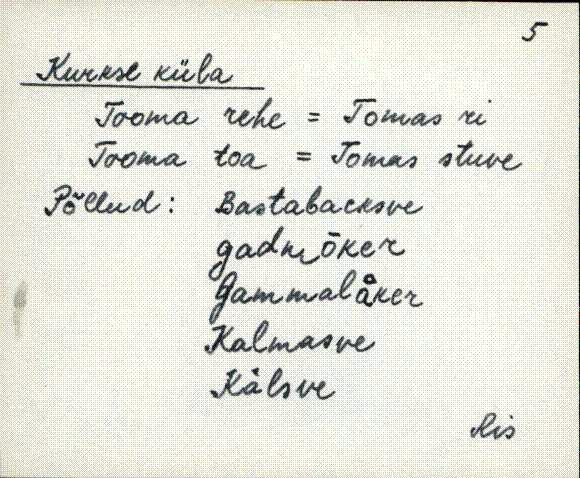 5
Kurkse küla
Tooma rehe = Tomas ri
Tooma toa = Tomas stuve
Põllud: Bastabacksve
gadn, ōker
Gammalåker
Kalmasve
Kålsve